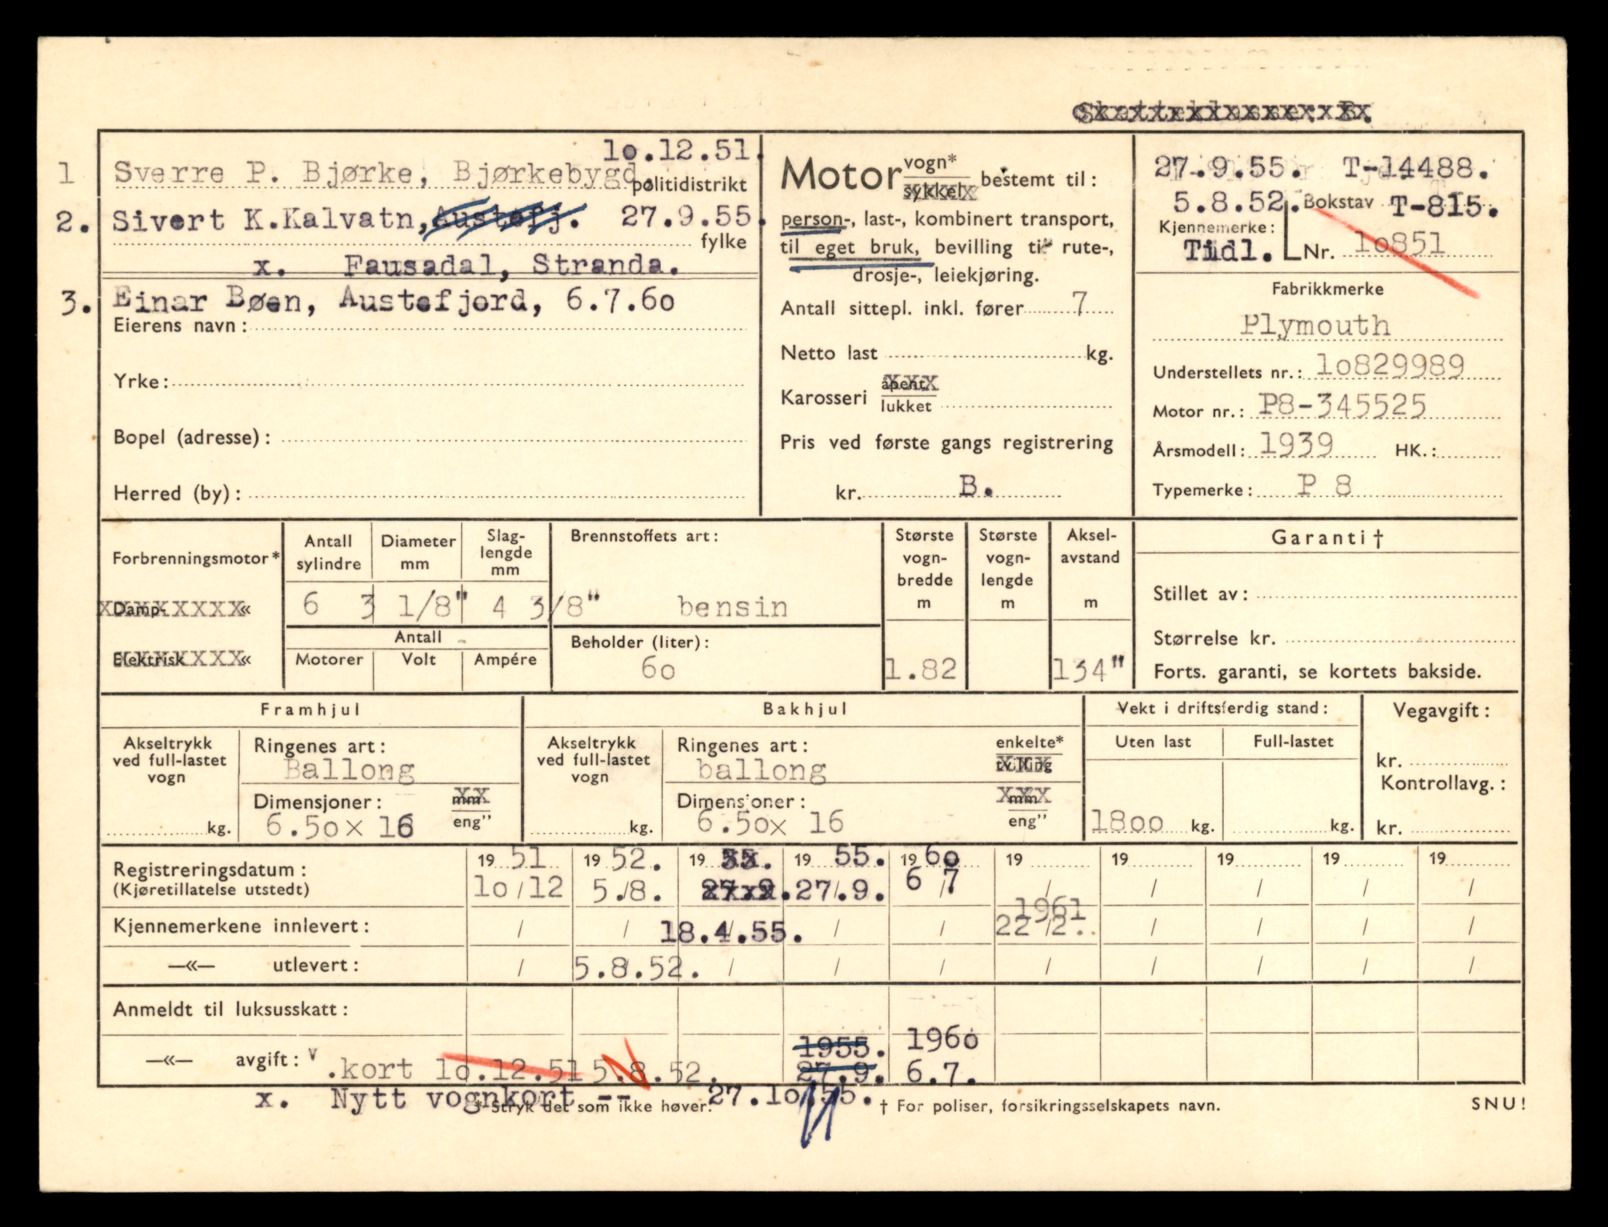 Skatteklasse: B.
1 Sverre P. Bjørke, Bjørkebygd. 10.12.51.
politidistrikt
2. Sivert K.Kalvatn, Austefj. 27.9.55.
fylke
x. Fausadal, Stranda.
3. Einar Bøen, Austefjord, 6.7.60
Eierens navn:
Yrke:
Bopel (adresse):
Herred (by):
Motor vogn* sykkel bestemt til:
person-, last-, kombinert transport,
til eget bruk, bevilling til rute-,
drosje-, leiekjøring.
Antall sittepl. inkl. fører 7
Netto last kg.
Karosseri åpent lukket
Pris ved første gangs registrering
kr. B.
27.9.55. T-14488.
5.8.52. Bokstav T-815.
Kjennemerke:
Tidl. Nr. 10851
Fabrikkmerke
Plymouth
Understellets nr.: 10829989
Motor nr.: P8-345525
Årsmodell: 1939 HK.:
Typemerke: P 8
Forbrenningsmotor*
Damp- «
Elektrisk «
Antall sylindre
Diameter mm
Slag-lengde mm
6 3 1/8" 4 3/8"
Antall
Motorer Volt Ampére
Brennstoffets art:
bensin
Beholder (liter):
60
Største vogn-bredde m
1.82
Største vogn-lengde m
Aksel-avstand m
134"
Garanti †
Stillet av:
Størrelse kr.
Forts. garanti, se kortets bakside.
Framhjul
Akseltrykk ved full-lastet vogn
kg.
Ringenes art:
Ballong
Dimensjoner: mm eng"
6.50x 16
Bakhjul
Akseltrykk ved full-lastet vogn
kg.
Ringenes art: enkelte* tvilling
ballong
Dimensjoner: mm eng"
6.50x 16
Vekt i driftsferdig stand:
Uten last Full-lastet
1800 kg. kg.
Vegavgift:
kr.
Kontrollavg.:
kr.
Registreringsdatum: 19 51 19 52. 19 55. 19 55. 19 60 19 19 19 19 19
(Kjøretillatelse utstedt) 10/12 5./8. 27.9. 27./9. 6/7 / / / / /
1961
Kjennemerkene innlevert: / / 18.4./55. / / 22/2. / / / /
—«— utlevert: / 5.8.52. / / / / / / / /
Anmeldt til luksusskatt:
1955. 1960
—«— avgift: v.kort 10.12.51 5.8.52. 27.9. 6.7.
x. Nytt vognkort -- 27.10.55.
* Stryk det som ikke høver. † For poliser, forsikringsselskapets navn. SNU!